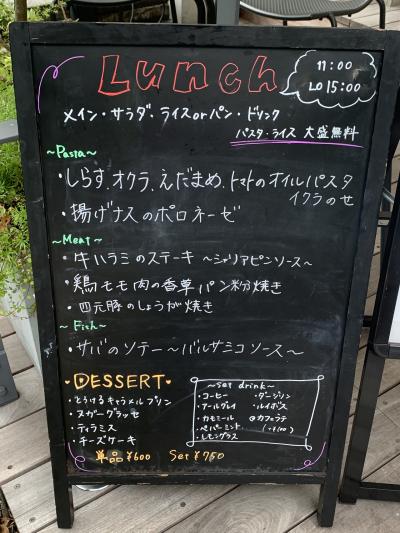 Lunch
11:00
LO 15:00
メイン・サラダ・ライスorパン・ドリンク
パスタ・ライス 大盛無料
~Pasta~
・しらす、オクラ、えだまめ、トマトのオイルパスタ
イクラのせ
・揚げナスのボロネーゼ
~Meat~
・牛ハラミのステーキ ~シャリアピンソース~
・鶏モモ肉の香草パン粉焼き
・四元豚のしょうが焼き
~Fish~
・サバのソテー~バルサミコソース~
DESSERT
・とろけるキャラメルプリン
・ヌガーグラッセ
・ティラミス
・チーズケーキ
単品 ¥600 Set ¥750
~set drink~
・コーヒー ・ダージリン
・アールグレイ ・ルイボス
・カモミール @カフェラテ
・ペパーミント (+¥100)
・レモングラス